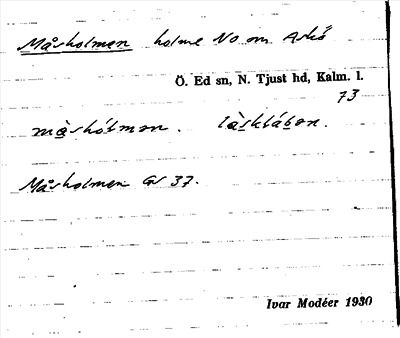 Måsholmen holme NO om Askö
Ö. Ed sn, N. Tjust hd, Kalm. l.
73
måshólmen.
Måsholmen GS 37.
Ivar Modéer 1930